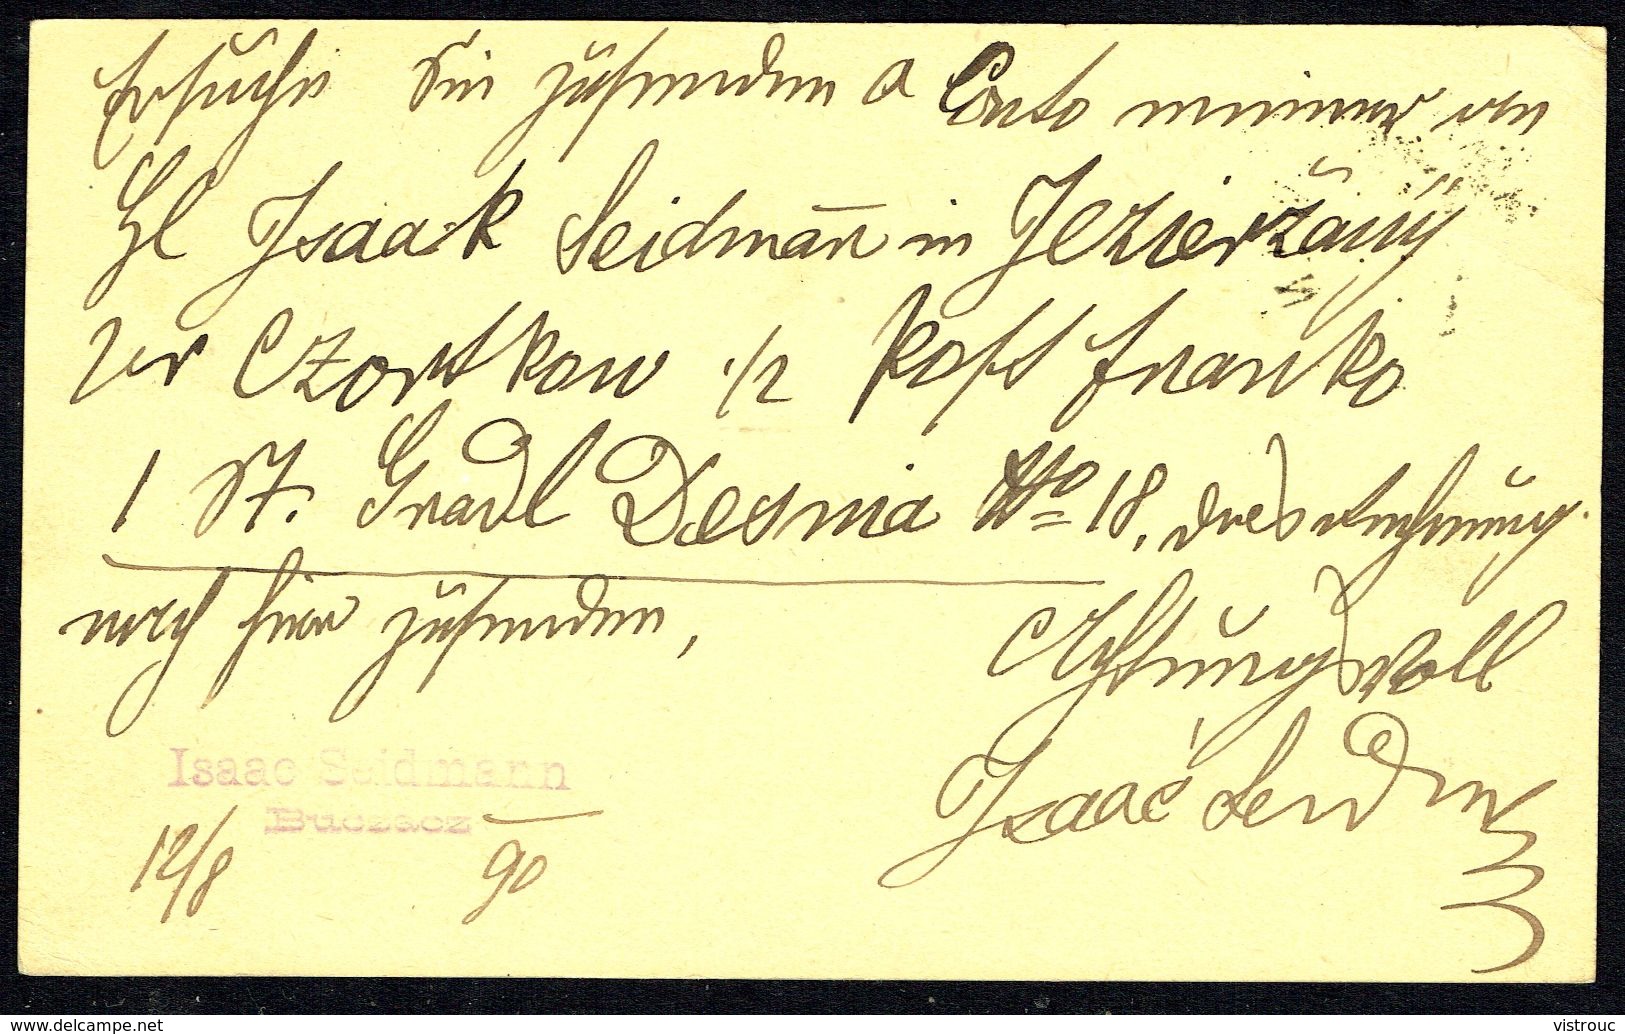 Ersuche Sie zusenden a Conto meiner an
Hl Isaak Seidmann in Jezierzany
per Czortkow 1/2 Post franko
1 St. Gradl Desnia No 18, die Rechnung
nach hier zusenden,
Achtungsvoll
Isaac Seidmann
Isaac Seidmann
Buczacz
12/8 90
www.delcampe.net
vistrouc